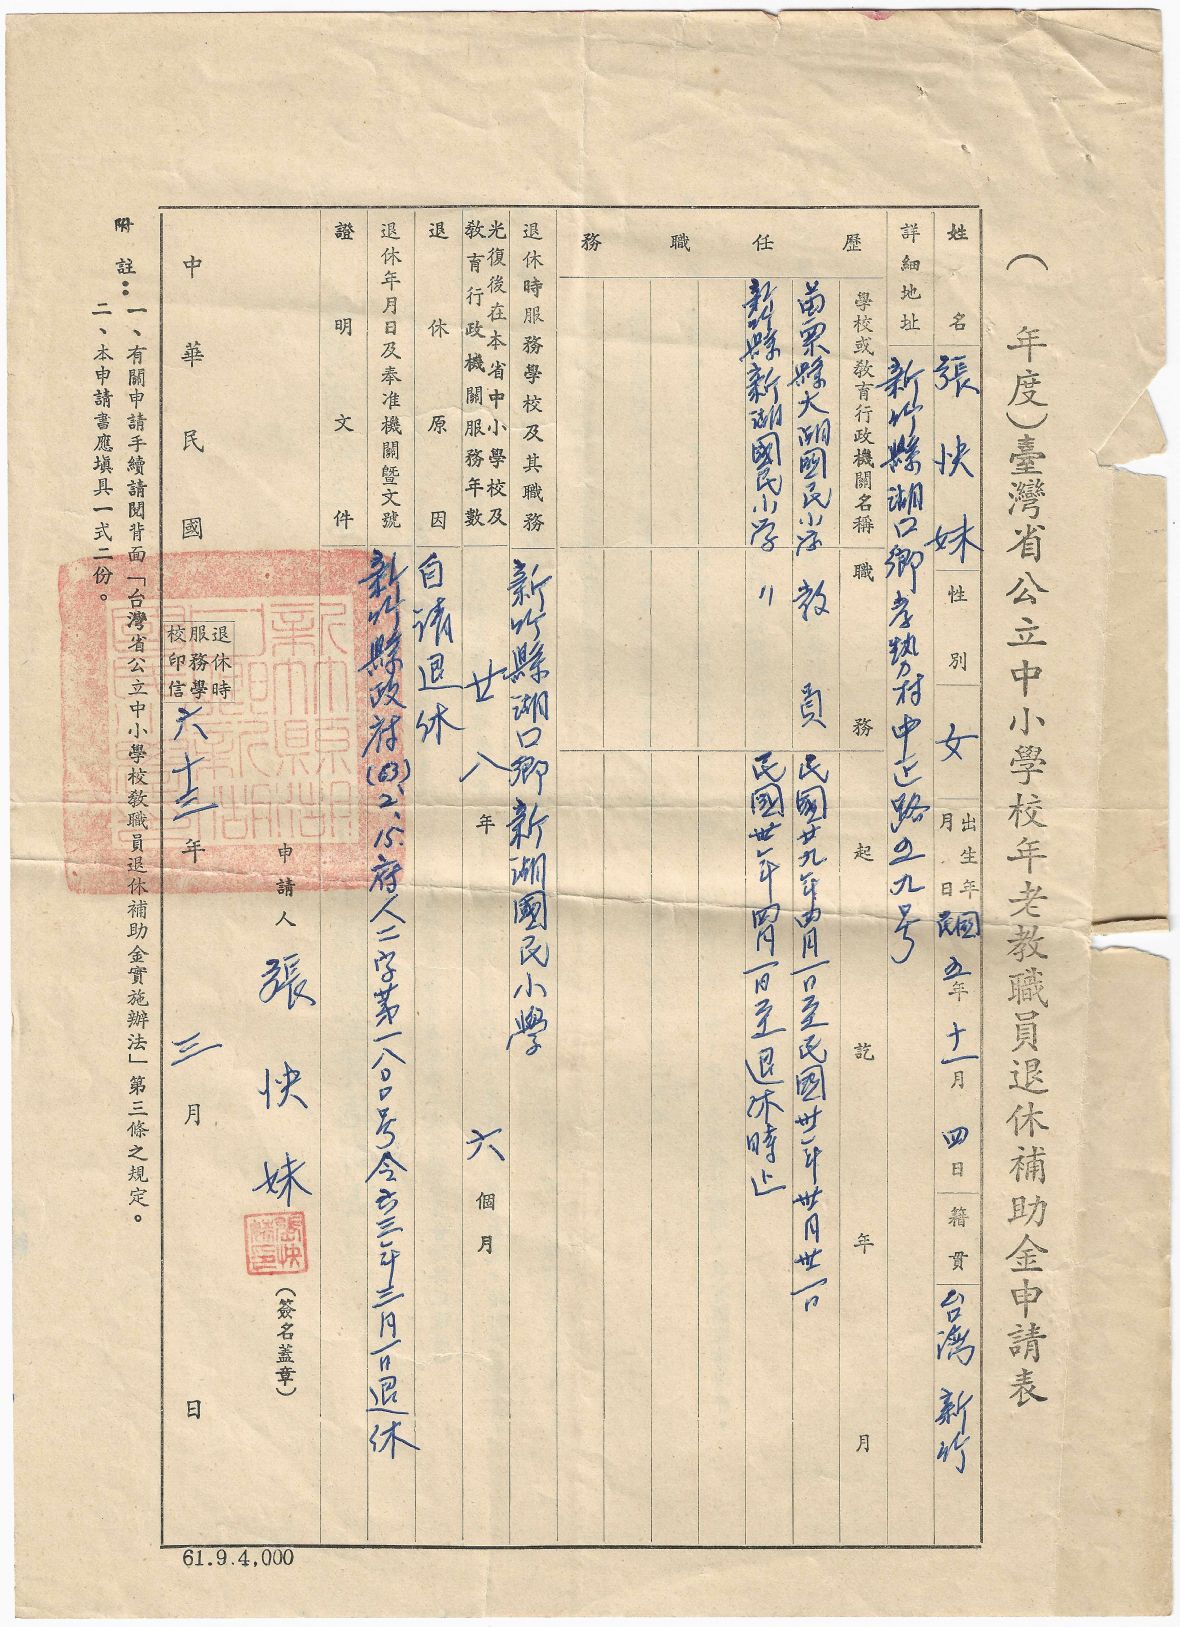 （　年度）臺灣省公立中小學校年老教職員退休補助金申請表
姓名 張快妹 性別 女 出生年月日 民國五年十一月四日 籍貫 台灣新竹
詳細地址 新竹縣湖口鄉孝勢村中正路五九号
歷任職務
學校或教育行政機關名稱 職務 起訖年月
苗栗縣大湖國民小学 教員 民國廿九年四月一日至民國卅一年卅月卅一日
新竹縣新湖國民小学 〃 民國卅一年四月一日至退休時止
退休時服務學校及其職務 新竹縣湖口鄉新湖國民小學
光復後在本省中小學校及教育行政機關服務年數 廿八年六個月
退休原因 自請退休
退休年月日及奉准機關暨文號 新竹縣政府(63)2.15.府人二字第一八〇〇号令六三年三月一日退休
證明文件
申請人 張快妹 （簽名蓋章）
退休時服務學校印信
中華民國六十三年三月　日
附註：一、有關申請手續請閱背面「台灣省公立中小學校教職員退休補助金實施辦法」第三條之規定。
二、本申請書應填具一式二份。
61.9.4,000